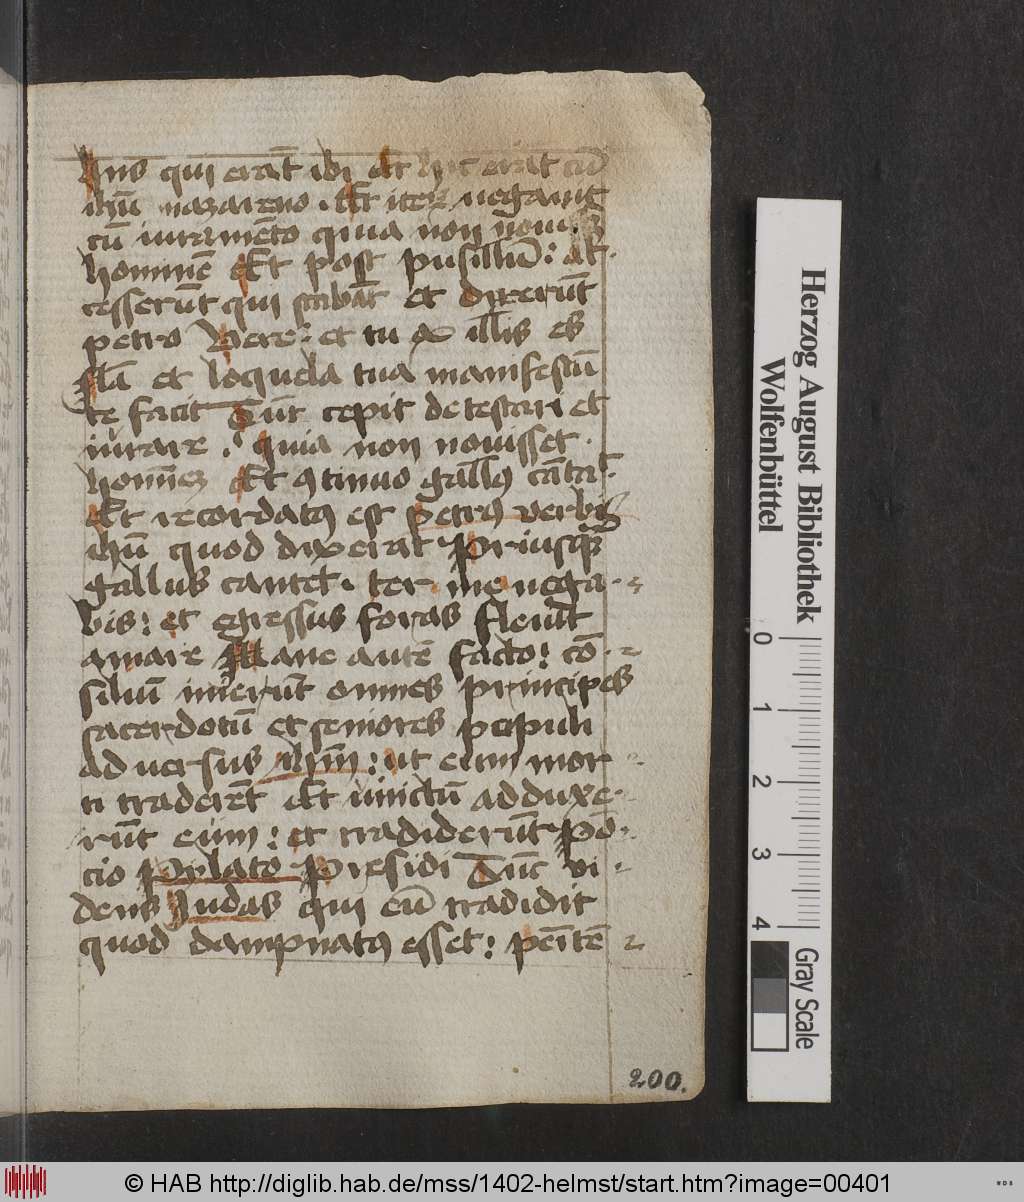 hiis qui erāt ibi Et hic erat cū
ihū nazareno. Et iteꝝ negauit
cū iuramēto quia non noui
hominē Et post pusillū: ac-
cesserūt qui stabāt et dixerūt
petro Vere: et tu ex illis es
Nā et loquela tua manifestū
te facit Tūc cepit detestari et
iurare: quia non nouisset.
hominē Et ꝯtinuo gallꝰ cātāt
Et recordatꝰ est petrꝰ verbi
ihū quod dixerat Priusqꝫ
gallus cantet. ter me nega-
bis: et egressus foras fleuit
amare Mane autē facto: cō-
siliū inierūt omnes principes
sacerdotū et seniores populi
aduersus ihm̄: ut eum mor
ti traderēt Et uinctū adduxe-
rūt eum: et tradiderūt Pō-
cio Pylato Presidi Tūc vi-
dens Iudas qui eū tradidit
quod dampnatꝰ esset: penitē
200.
Herzog August Bibliothek
Wolfenbüttel
0 1 2 3 4
Gray Scale
© HAB http://diglib.hab.de/mss/1402-helmst/start.htm?image=00401